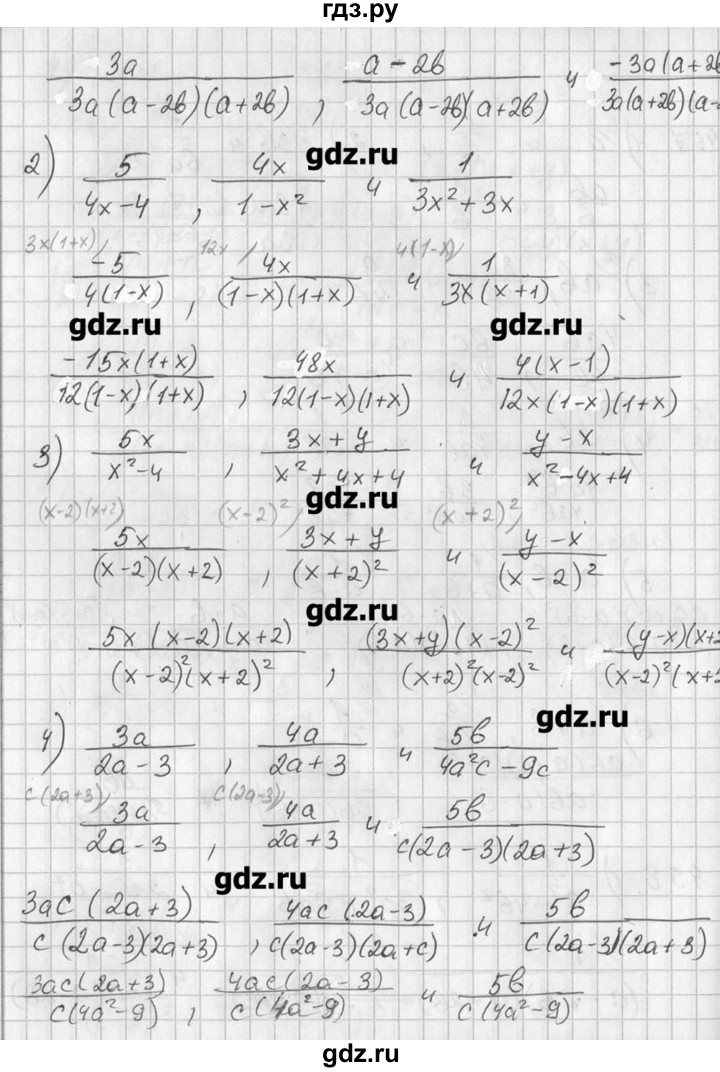 гдз.ру
3a/(3a(a-2b)(a+2b)), (a-2b)/(3a(a-2b)(a+2b)) и -3a(a+2b/(3a(a+2b)(a-
gdz.ru
2) 5/(4x-4), 4x/(1-x²) и 1/(3x²+3x)
3x(1+x)/ 12x/ 4(1-x)/
-5/(4(1-x)), 4x/((1-x)(1+x)) и 1/(3x(x+1))
gdz.ru gdz.ru
-15x(1+x)/(12(1-x)(1+x)), 48x/(12(1-x)(1+x)) и 4(x-1)/(12x(1-x)(1+x))
3) 5x/(x²-4), (3x+y)/(x²+4x+4) и (y-x)/(x²-4x+4)
gdz.ru
(x-2)(x+2)/ (x-2)²/ (x+2)²/
5x/((x-2)(x+2)), (3x+y)/((x+2)²) и (y-x)/((x-2)²)
gdz.ru
5x(x-2)(x+2)/((x-2)²(x+2)²), (3x+y)(x-2)²/((x+2)²(x-2)²) и (y-x)(x+2/((x-2)²(x+2
gdz.ru
4) 3a/(2a-3), 4a/(2a+3) и 5b/(4a²c-9c)
c(2a+3)/ c(2a-3)/
3a/(2a-3), 4a/(2a+3) и 5b/(c(2a-3)(2a+3))
gdz.ru
3ac(2a+3)/(c(2a-3)(2a+3)), 4ac(2a-3)/(c(2a-3)(2a+c)) и 5b/(c(2a-3)(2a+3))
3ac(2a+3)/(c(4a²-9)), 4ac(2a-3)/(c(4a²-9)) и 5b/(c(4a²-9))
gdz.ru